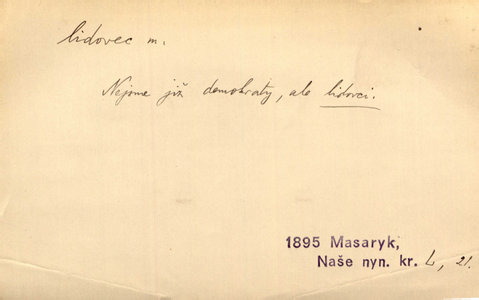 lidovec m.
Nejsme již demokraty, ale lidovci.
1895 Masaryk,
Naše nyn. kr. L, 21.